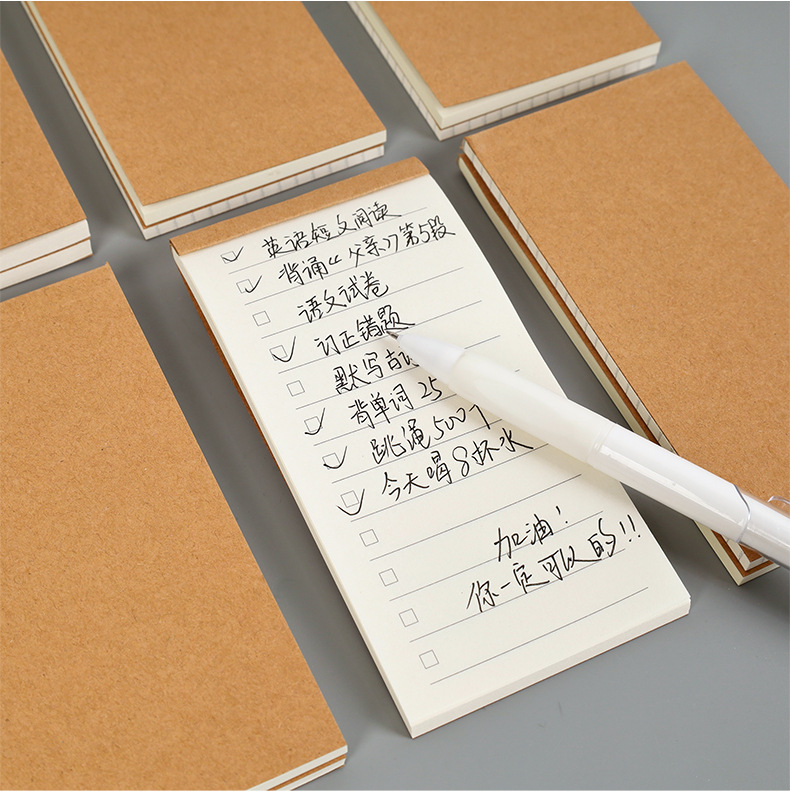 英语短文阅读
背诵《父亲》第5段
语文试卷
订正错题
默写古
背单词 25
跳绳 500个
今天喝8杯水
加油！
你一定可以的！！